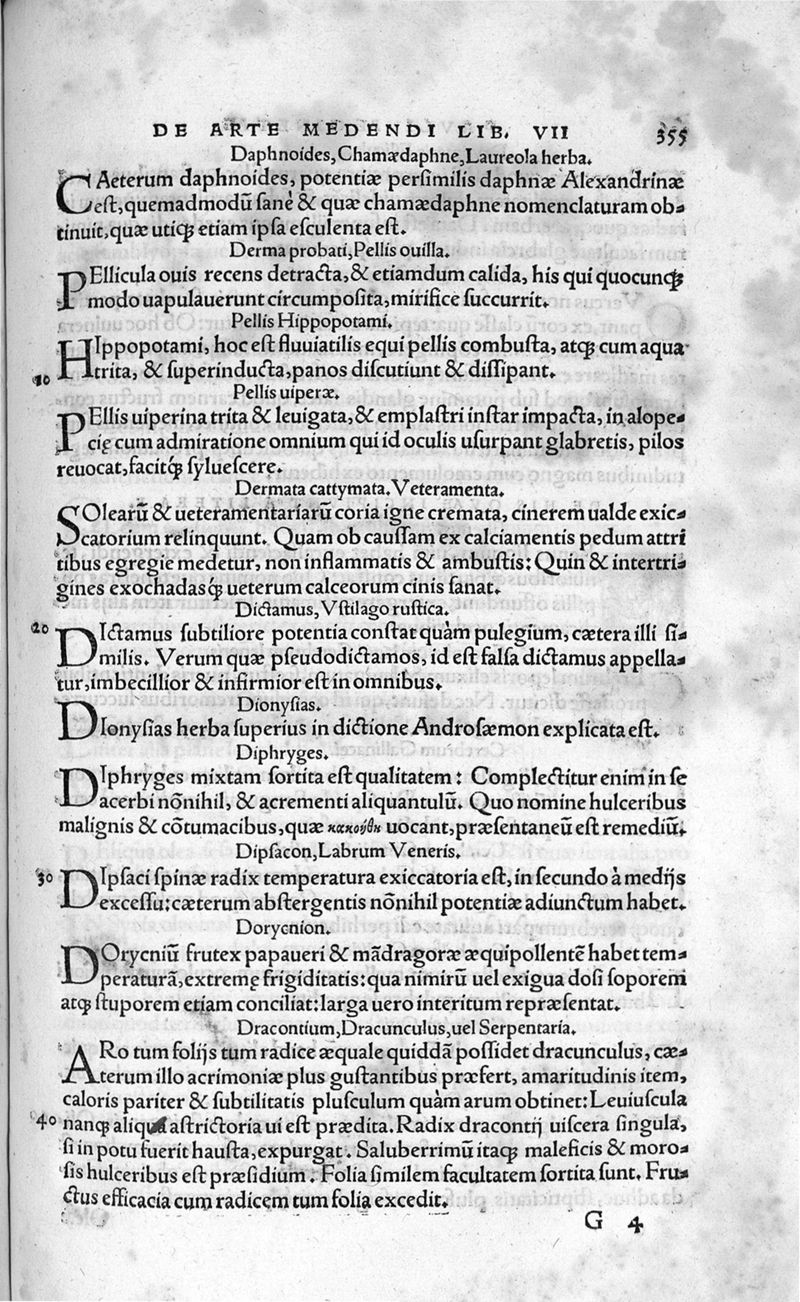 DE ARTE MEDENDI LIB. VII 355
Daphnoides, Chamædaphne, Laureola herba.
CAeterum daphnoides, potentiæ persimilis daphnæ Alexandrinæ
est, quemadmodũ sanè & quæ chamædaphne nomenclaturam ob-
tinuit, quæ utiqꝫ etiam ipsa esculenta est.
Derma probati, Pellis ouilla.
PEllicula ouis recens detracta, & etiamdum calida, his qui quocunqꝫ
modo uapulauerunt circumposita, mirifice succurrit.
Pellis Hippopotami.
HIppopotami, hoc est fluuiatilis equi pellis combusta, atqꝫ cum aqua
10 trita, & superinducta, panos discutiunt & dissipant.
Pellis uiperæ.
PEllis uiperina trita & leuigata, & emplastri instar impacta, in alope-
cię cum admiratione omnium qui id oculis usurpant glabretis, pilos
reuocat, facitqꝫ syluescere.
Dermata cattymata. Veteramenta.
SOlearũ & ueteramentariarũ coria igne cremata, cinerem ualde exic-
catorium relinquunt. Quam ob caussam ex calciamentis pedum attri
tibus egregie medetur, non inflammatis & ambustis: Quin & intertri-
gines exochadasqꝫ ueterum calceorum cinis sanat.
Dictamus, Vstilago rustica.
20 DIctamus subtiliore potentia constat quàm pulegium, cætera illi si-
milis. Verum quæ pseudodictamos, id est falsa dictamus appella-
tur, imbecillior & infirmior est in omnibus.
Dionysias.
DIonysias herba superius in dictione Androsæmon explicata est.
Diphryges.
DIphryges mixtam sortita est qualitatem: Complectitur enim in se
acerbi nõnihil, & acrementi aliquantulũ. Quo nomine hulceribus
malignis & cõtumacibus, quæ κακοήθη uocant, præsentaneũ est remediũ.
Dipsacon, Labrum Veneris.
30 DIpsaci spinæ radix temperatura exiccatoria est, in secundo à medijs
excessu: cæterum abstergentis nõnihil potentiæ adiunctum habet.
Dorycnion.
DOrycniũ frutex papaueri & mãdragoræ æquipollentẽ habet tem-
peraturã, extremę frigiditatis: qua nimirũ uel exigua dosi soporem
atqꝫ stuporem etiam conciliat: larga uero interitum repræsentat.
Dracontium, Dracunculus, uel Serpentaria.
ARo tum folijs tum radice æquale quiddã possidet dracunculus, cæ-
terum illo acrimoniæ plus gustantibus præfert, amaritudinis item,
caloris pariter & subtilitatis plusculum quàm arum obtinet: Leuiuscula
40 nanqꝫ aliqua astrictoria ui est prædita. Radix dracontij uiscera singula,
si in potu fuerit hausta, expurgat. Saluberrimũ itaqꝫ maleficis & moro-
sis hulceribus est præsidium. Folia similem facultatem sortita sunt. Fru-
ctus efficacia cum radicem tum folia excedit.
G 4